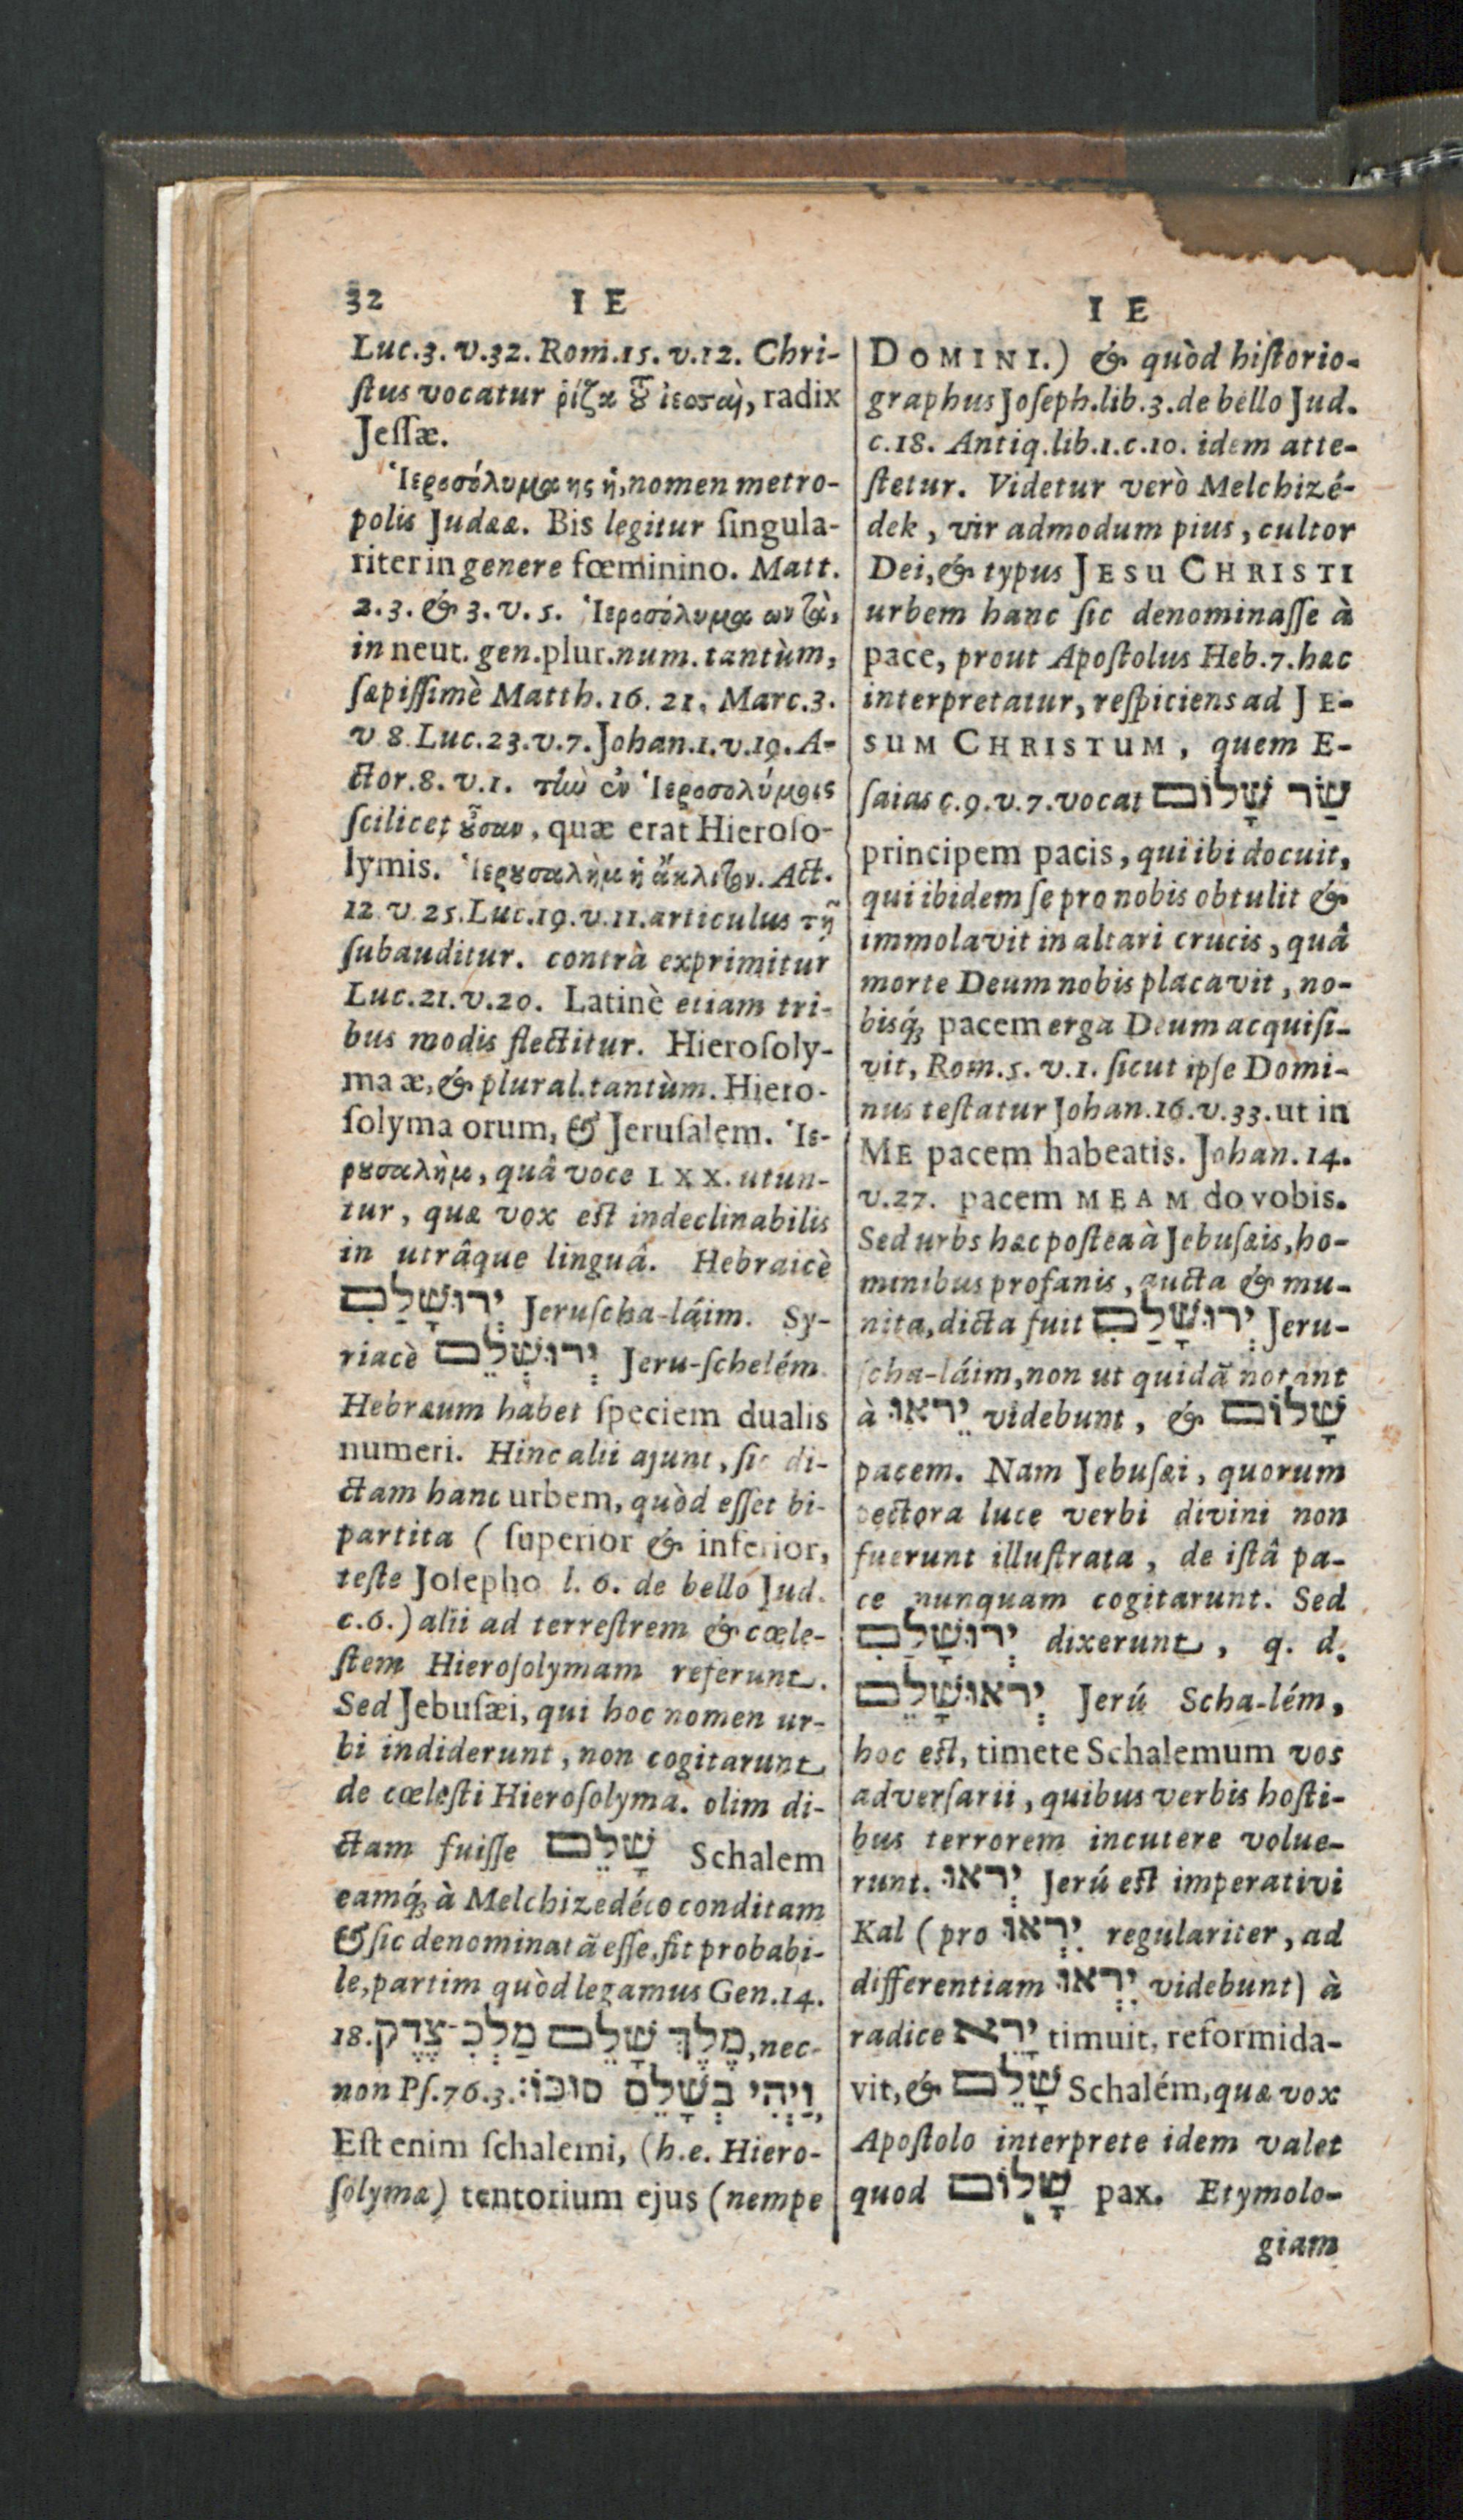 32 I E
Luc.3. v.32. Rom.15. v.12. Chri-
ſtus vocatur ῥίζα τȣ̃ ἰεσσαὶ, radix
Jeſſæ.
Ἱεροσόλυμα ης ἡ, nomen metro-
polis Judææ. Bis legitur ſingula-
riter in genere fœminino. Matt.
2.3. & 3. v. 5. Ἱεροσόλυμα ων τὰ,
in neut. gen. plur. num. tantùm,
ſæpiſſimè Matth. 16. 21. Marc.3.
v 8. Luc.23.v.7. Johan.1.v.19. A-
ctor.8. v.1. τὴν ἐν Ἱεροσολύμοις
ſcilicet ȣ̓͂σαν, quæ erat Hieroſo-
lymis. Ἱερȣσαλὴμ ἡ ἄκλιτον. Act.
12 v 25. Luc.19. v.11. articulus τῇ
ſubauditur. contrà exprimitur
Luc.21.v.20. Latinè etiam tri-
bus modis flectitur. Hieroſoly-
ma æ, & plural. tantùm. Hiero-
ſolyma orum, & Jeruſalem. Ἱε-
ρȣσαλὴμ, quâ voce LXX. utun-
tur, quæ vox eſt indeclinabilis
in utrâque linguâ. Hebraicè
יְרוּשָׁלַיִם Jeruſcha-láim. Sy-
riacè יְרוּשְׁלֵם Jeru-ſchelém
Hebræum habet ſpeciem dualis
numeri. Hinc alii ajunt, ſic di-
ctam hanc urbem, quòd eſſet bi-
partita ( ſuperior & inferior,
teſte Joſepho l. 6. de bello Jud.
c.6.) alii ad terreſtrem & cœle-
ſtem Hieroſolymam referunt.
Sed Jebuſæi, qui hoc nomen ur-
bi indiderunt, non cogitarunt
de cœleſti Hieroſolyma. olim di-
ctam fuiſſe שָׁלֵם Schalem
eamq́; à Melchizedéco conditam
& ſic denominatã eſſe, fit probabi-
le, partim quòd legamus Gen.14.
18. מֶלֶךְ שָׁלֵם מַלְכִּי־צֶדֶק, nec-
non Pſ.76.3. וַיְהִי בְשָׁלֵם סוּכּוֹ׃
Eſt enim ſchalemi, (h.e. Hiero-
ſolymæ) tentorium ejus (nempe
I E
DOMINI.) & quòd hiſtorio-
graphus Joſeph. lib.3. de bello Jud.
c.18. Antiq. lib.1.c.10. idem atte-
ſtetur. Videtur verò Melchizé-
dek, vir admodum pius, cultor
Dei, & typus JESU CHRISTI
urbem hanc ſic denominaſſe à
pace, prout Apoſtolus Heb.7. hæc
interpretatur, reſpiciens ad JE-
SUM CHRISTUM, quem E-
ſaias c.9. v.7. vocat שַׂר שָׁלוֹם
principem pacis, qui ibi docuit,
qui ibidem ſe pro nobis obtulit &
immolavit in altari crucis, quâ
morte Deum nobis placavit, no-
bisq́; pacem erga Deum acquiſi-
vit, Rom.5. v.1. ſicut ipſe Domi-
nus teſtatur Johan.16.v.33. ut in
ME pacem habeatis. Johan.14.
v.27. pacem MEAM do vobis.
Sed urbs hæc poſtea à Jebuſæis, ho-
minibus profanis, aucta & mu-
nita, dicta fuit יְרוּשָׁלַיִם Jeru-
ſcha-láim, non ut quidã notant
à יֵרָאוּ videbunt, & שָׁלוֹם
pacem. Nam Jebuſæi, quorum
pectora luce verbi divini non
fuerunt illuſtrata, de iſtâ pa-
ce nunquam cogitarunt. Sed
יְרוּשָׁלַיִם dixerunt, q. d.
יְראוּשָׁלֵם Jerú Scha-lém,
hoc eſt, timete Schalemum vos
adverſarii, quibus verbis hoſti-
bus terrorem incutere volue-
runt. יְראוּ Jerú eſt imperativi
Kal (pro יִרְאוּ regulariter, ad
differentiam יִרְאוּ videbunt) à
radice יָרֵא timuit, reformida-
vit, & שָׁלֵם Schalém, quæ vox
Apoſtolo interprete idem valet
quod שָׁלוֹם pax. Etymolo-
giam